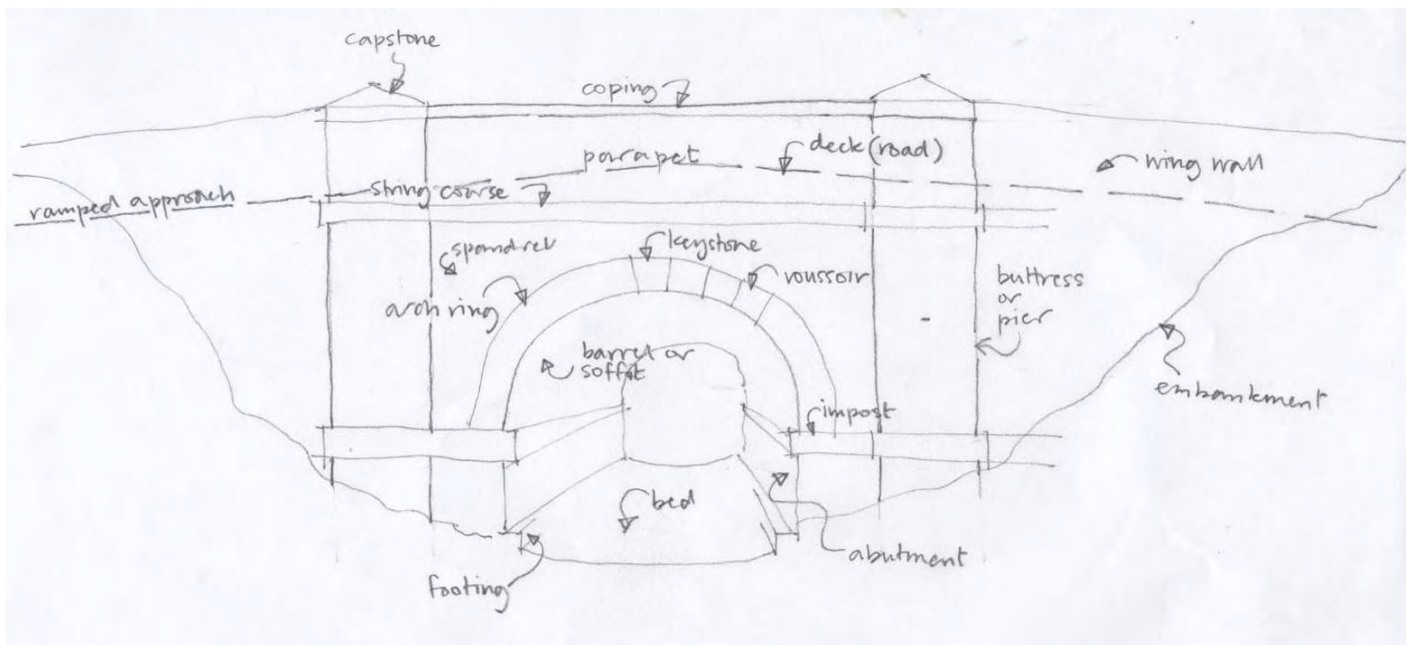 capstone
coping
parapet
deck (road)
wing wall
ramped approach
string coarse
spandrel
keystone
voussoir
arch ring
buttress
or
pier
barrel or
soffit
impost
embankment
bed
abutment
footing